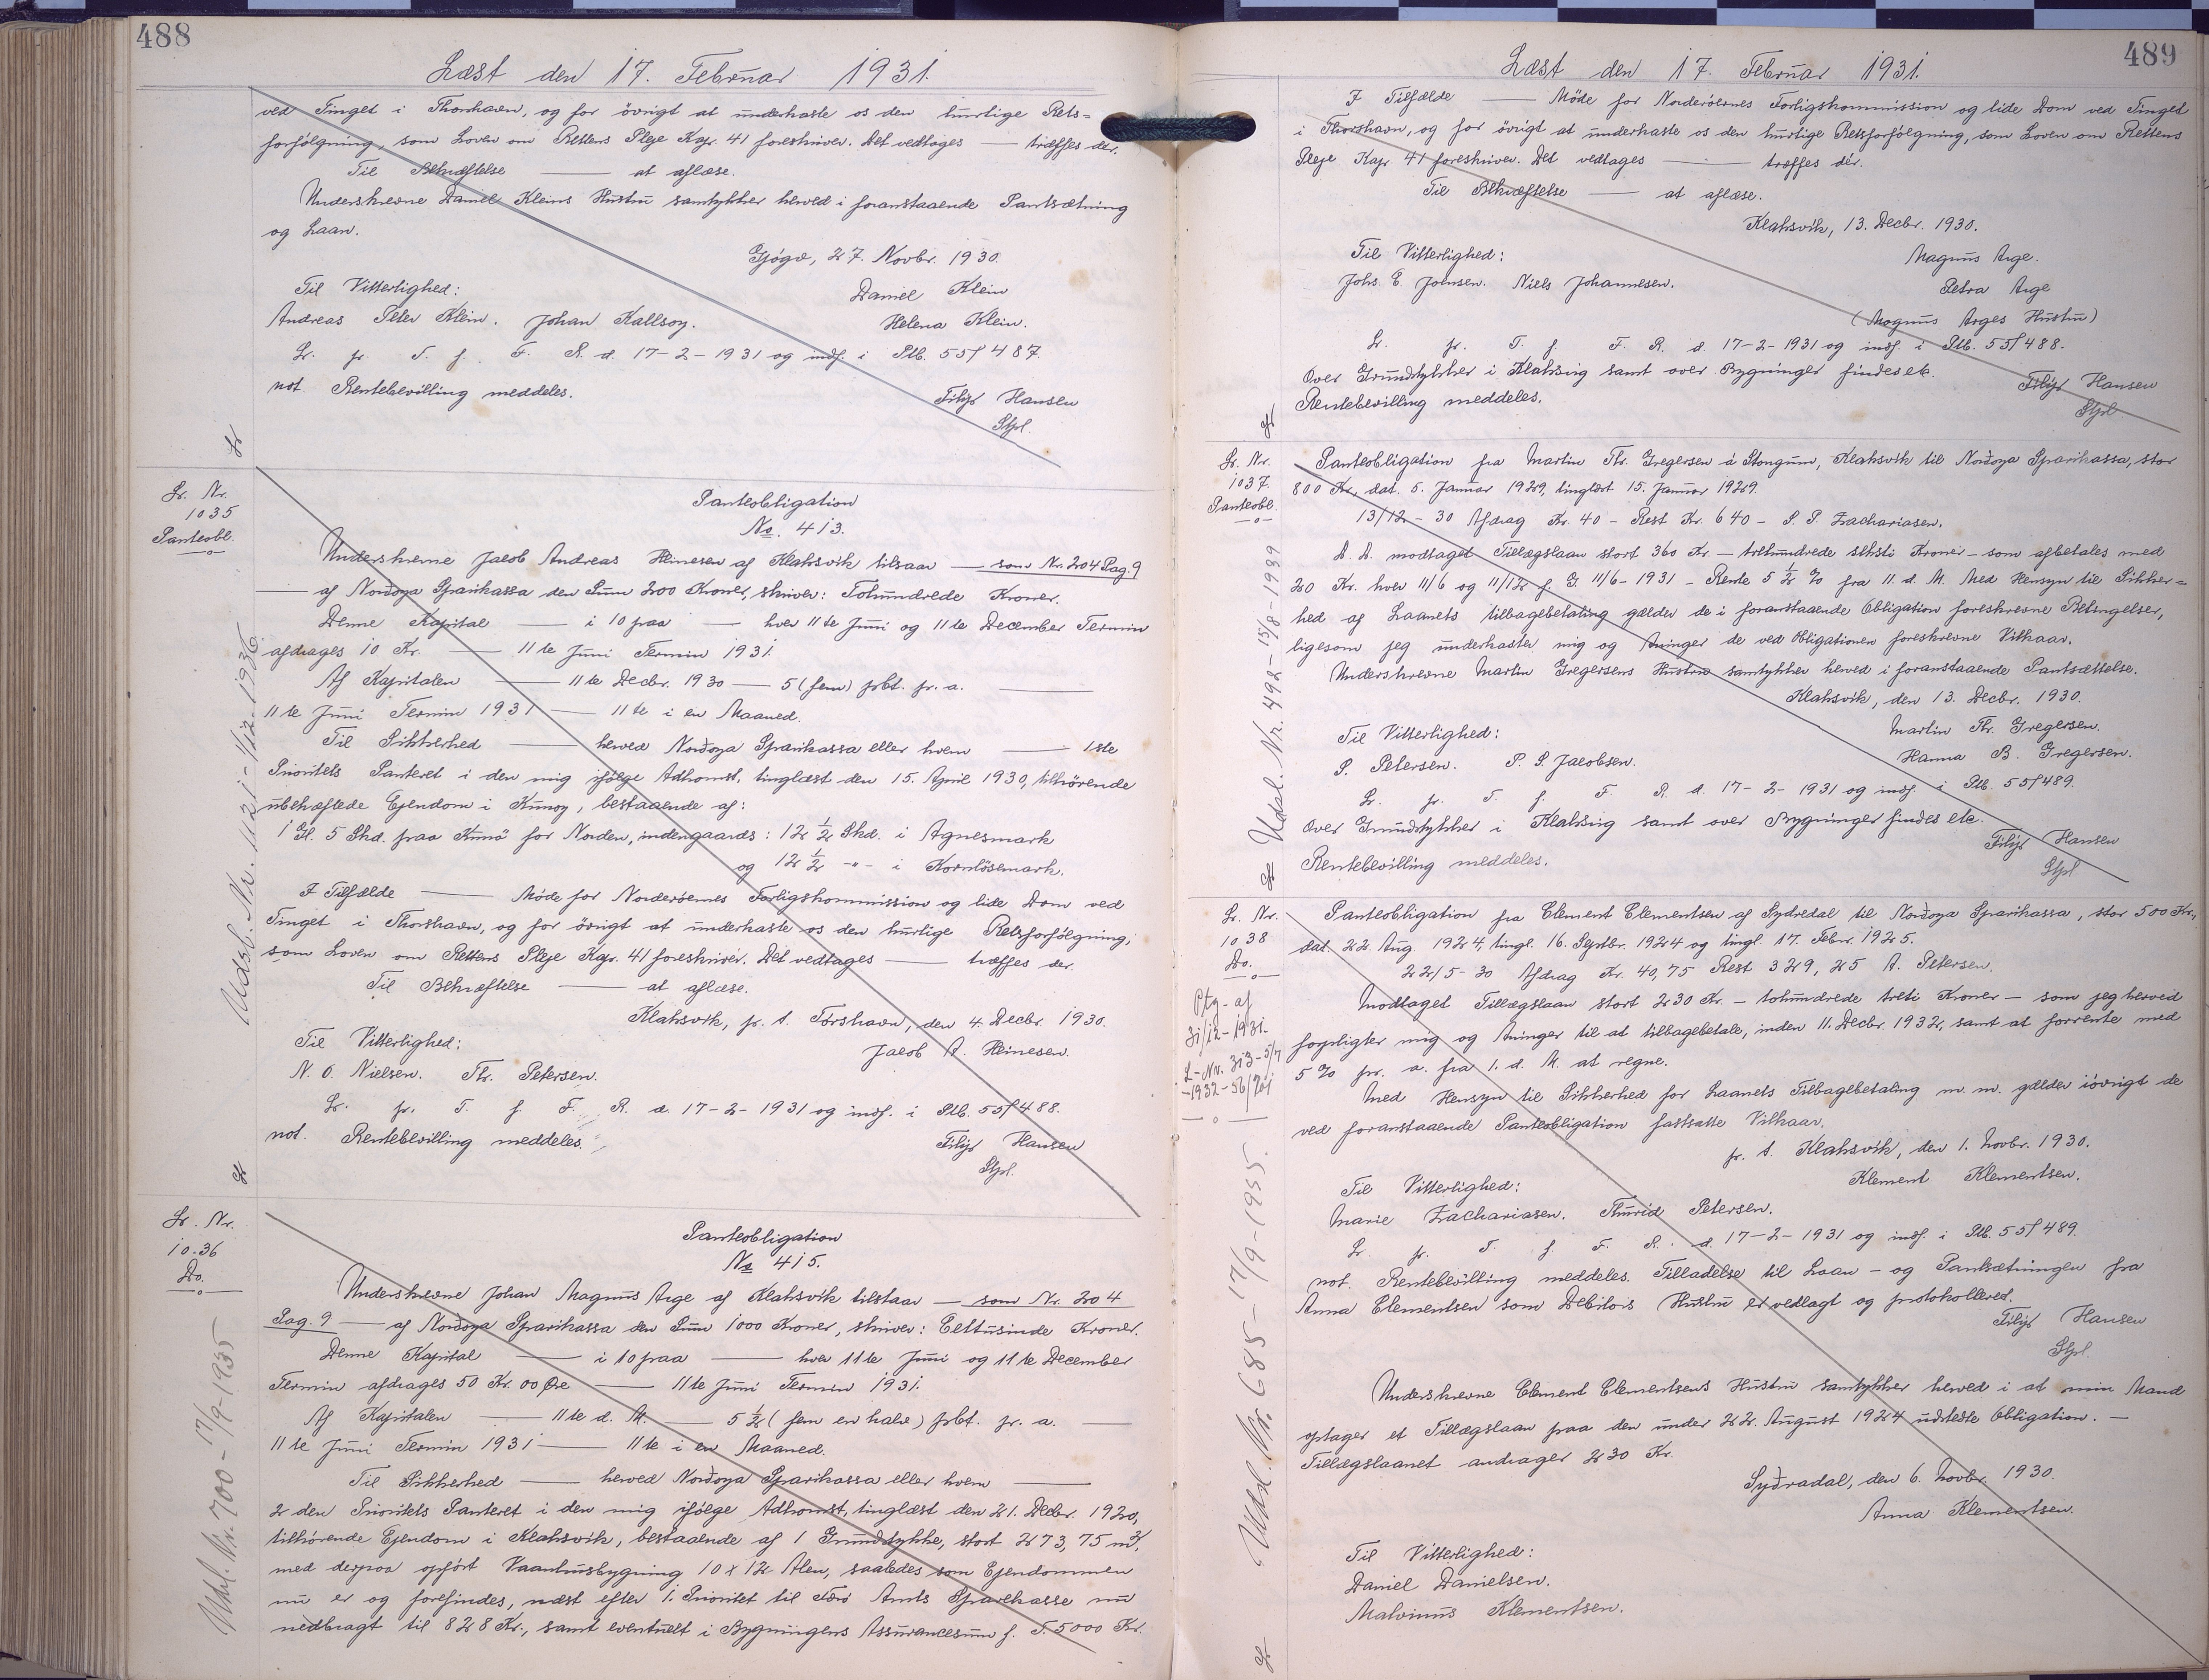 488
Læst den 17. Februar 1931.
ved Tinget i Thorshavn, og for övrigt at underkaste os den hurtige Rets=
forfölgning, som Loven om Rettens Pleje Kap. 41 foreskriver. Det vedtages — træffes der.
Til Bekræftelse — at aflæse.
Underskrevne Daniel Kleins Hustru samtykker herved i foranstaaende Pantsætning
og Laan.
Gjógv, 27. Novbr. 1930.
Til Vitterlighed: Daniel Klein
Andreas Peter Klein. Johan Kallsoy. Helena Klein.
Lr. pr. T. f. F. R. d. 17-2-1931 og indf. i Ptb. 55/487.
not. Rentebevilling meddeles.
Filip Hansen
Stpl.
Lr. Nr.
1035
Panteobl.
Udsl. Nr. 1121 - 1/12 1936
Panteobligation
No. 413.
Underskrevne Jacob Andreas Heinesen af Klaksvik tilstaar — som Nr. 204 Pag. 9
— af Nordoya Sparikassa den Sum 200 Kroner, skriver: Tohundrede Kroner.
Denne Kapital — i 10 paa — hver 11te Juni og 11te December Termin
afdrages 10 Kr. — 11te Juni Termin 1931.
Af Kapitalen — 11te Decbr. 1930 — 5 (fem) pbt. pr. a. —
11te Juni Termin 1931 — 11te i en Maaned.
Til Sikkerhed — herved Nordoya Sparikassa eller hvem — 1ste
Prioritets Panteret i den mig ifölge Adkomst, tinglæst den 15. April 1930, tilhörende
ubehæftede Ejendom i Kunoy, bestaaende af:
1 Gl. 5 Skd. paa Kunö for Norden, indengaards: 12 1/2 Skd. i Agnesmark
og 12 1/2 -"- i Kornlösemark.
I Tilfælde — Möde for Norderöernes Forligskommission og lide Dom ved
Tinget i Thorshavn, og for övrigt at underkaste os den hurtige Retsforfölgning,
som Loven om Rettens Pleje Kap. 41 foreskriver. Det vedtages — træffes der.
Til Bekræftelse — at aflæse.
Klaksvik, p. t. Tórshavn, den 4. Decbr. 1930.
Til Vitterlighed: Jacob A. Heinesen.
N. O. Nielsen. Th. Petersen.
Lr. pr. T. f. F. R. d. 17-2-1931 og indf. i Ptb. 55/488.
not. Rentebevilling meddeles.
Filip Hansen
Stpl.
Lr. Nr.
1036
Do.
Udsl. Nr. 700 - 17/9-1955
Panteobligation
No 415.
Underskrevne Johan Magnus Arge af Klaksvik tilstaar — som Nr. 204
Pag. 9 — af Nordoya Sparikassa den Sum 1000 Kroner, skriver: Eettusinde Kroner.
Denne Kapital — i 10 paa — hver 11te Juni og 11te December
Termin afdrages 50 Kr. 00 Øre — 11te Juni Termin 1931.
Af Kapitalen — 11te d. M. — 5 1/2 (fem en halv) pbt. pr. a. —
11te Juni Termin 1931 — 11te i en Maaned.
Til Sikkerhed — herved Nordoya Sparikassa eller hvem —
2den Prioritets Panteret i den mig ifölge Adkomst, tinglæst den 21. Decbr. 1920,
tilhörende Ejendom i Klaksvik, bestaaende af 1 Grundstykke, stort 273,75 m²,
med derpaa opfört Vaanhusbygning 10 x 12 Alen, saaledes som Ejendommen
nu er og forefindes, næst efter 1. Prioritet til Færö Amts Sparekasse nu
nedbragt til 828 Kr., samt eventuelt i Bygningens Assurancesum f. T. 5000 Kr.
489
Læst den 17. Februar 1931.
I Tilfælde — Möde for Norderöernes Forligskommission og lide Dom ved Tinget
i Thorshavn, og for övrigt at underkaste os den hurtige Retsforfölgning, som Loven om Rettens
Pleje Kap. 41 foreskriver. Det vedtages — træffes dér.
Til Bekræftelse — at aflæse.
Klaksvik, 13. Decbr. 1930.
Til Vitterlighed: Magnus Arge.
Johs. E. Joensen. Niels Johannesen. Petra Arge
(Magnus Arges Hustru)
Lr. pr. T. f. F. R. d. 17-2-1931 og indf. i Ptb. 55/488.
Over Grundstykker i Klaksvig samt over Bygninger findes etc.
Rentebevilling meddeles.
Filip Hansen
Stpl
Lr. Nr.
1037.
Panteobl.
Udsl. Nr. 492 - 15/8-1939
Panteobligation fra Martin Th. Gregersen á Stongum, Klaksvik til Nordoya Sparikassa, stor
800 Kr., dat. 5. Januar 1929, tinglæst 15. Januar 1929.
13/12-30 Afdrag Kr. 40 - Rest Kr. 640 - P. P. Zachariasen.
D. D. modtaget Tillægslaan stort 360 Kr. — trehundrede seksti Kroner — som afbetales med
20 Kr. hver 11/6 og 11/12 f. G. 11/6-1931 - Rente 5 1/2 % fra 11. d. M. Med Hensyn til Sikker=
hed af Laanets tilbagebetaling gælder de i foranstaaende Obligation foreskrevne Betingelser,
ligesom jeg underkaster mig og Arvinger de ved Obligationen foreskrevne Vilkaar.
Underskrevne Martin Gregersens Hustru samtykker herved i foranstaaende Pantsættelse.
Klaksvik, den 13. Decbr. 1930.
Til Vitterlighed: Martin Th. Gregersen.
P. Petersen. P. P. Jacobsen. Hanna B. Gregersen.
Lr. pr. T. f. F. R. d. 17-2-1931 og indf. i Ptb. 55/489.
Over Grundstykker i Klaksvig samt over Bygninger findes etc.
Rentebevilling meddeles.
Filip Hansen
Stpl
Lr. Nr.
1038
Do.
Ptg. af
31/12-1931.
L-Nr. 313-5/7
-1932-56/701
Udsl. Nr. 685 - 17/9-1955.
Panteobligation fra Element Elementsen af Sydredal til Nordoya Sparikassa, stor 500 Kr.,
dat. 22. Aug. 1924, tingl. 16. Septbr. 1924 og tingl. 17. Febr. 1925.
22/5-30 Afdrag Kr. 40,75 Rest 329,25 A. Petersen.
Modtaget Tillægslaan stort 230 Kr. — tohundrede treti Kroner — som jeg herved
forpligter mig og Arvinger til at tilbagebetale, inden 11. Decbr. 1932, samt at forrente med
5 % pr. a. fra 1. d. M. at regne.
Med Hensyn til Sikkerhed for Laanets Tilbagebetaling m. m. gælder iövrigt de
ved foranstaaende Panteobligation fastsatte Vilkaar.
p. t. Klaksvik, den 1. Novbr. 1930.
Til Vitterlighed: Klement Klementsen.
Marie Zachariasen. Thurid Petersen.
Lr. pr. T. f. F. R. d. 17-2-1931 og indf. i Ptb. 55/489.
not. Rentebevilling meddeles. Tilladelse til Laan - og Pantsætningen fra
Anna Clementsen som Debitors Hustru er vedlagt og protokolleret.
Filip Hansen
Stpl.
Underskrevne Clement Clementsens Hustru samtykker herved i at min Mand
optager et Tillægslaan paa den under 22. August 1924 udstedte Obligation. —
Tillægslaanet andrager 230 Kr.
Syðradal, den 6. Novbr. 1930.
Anna Klementsen.
Til Vitterlighed:
Daniel Danielsen.
Malvinus Klementsen.